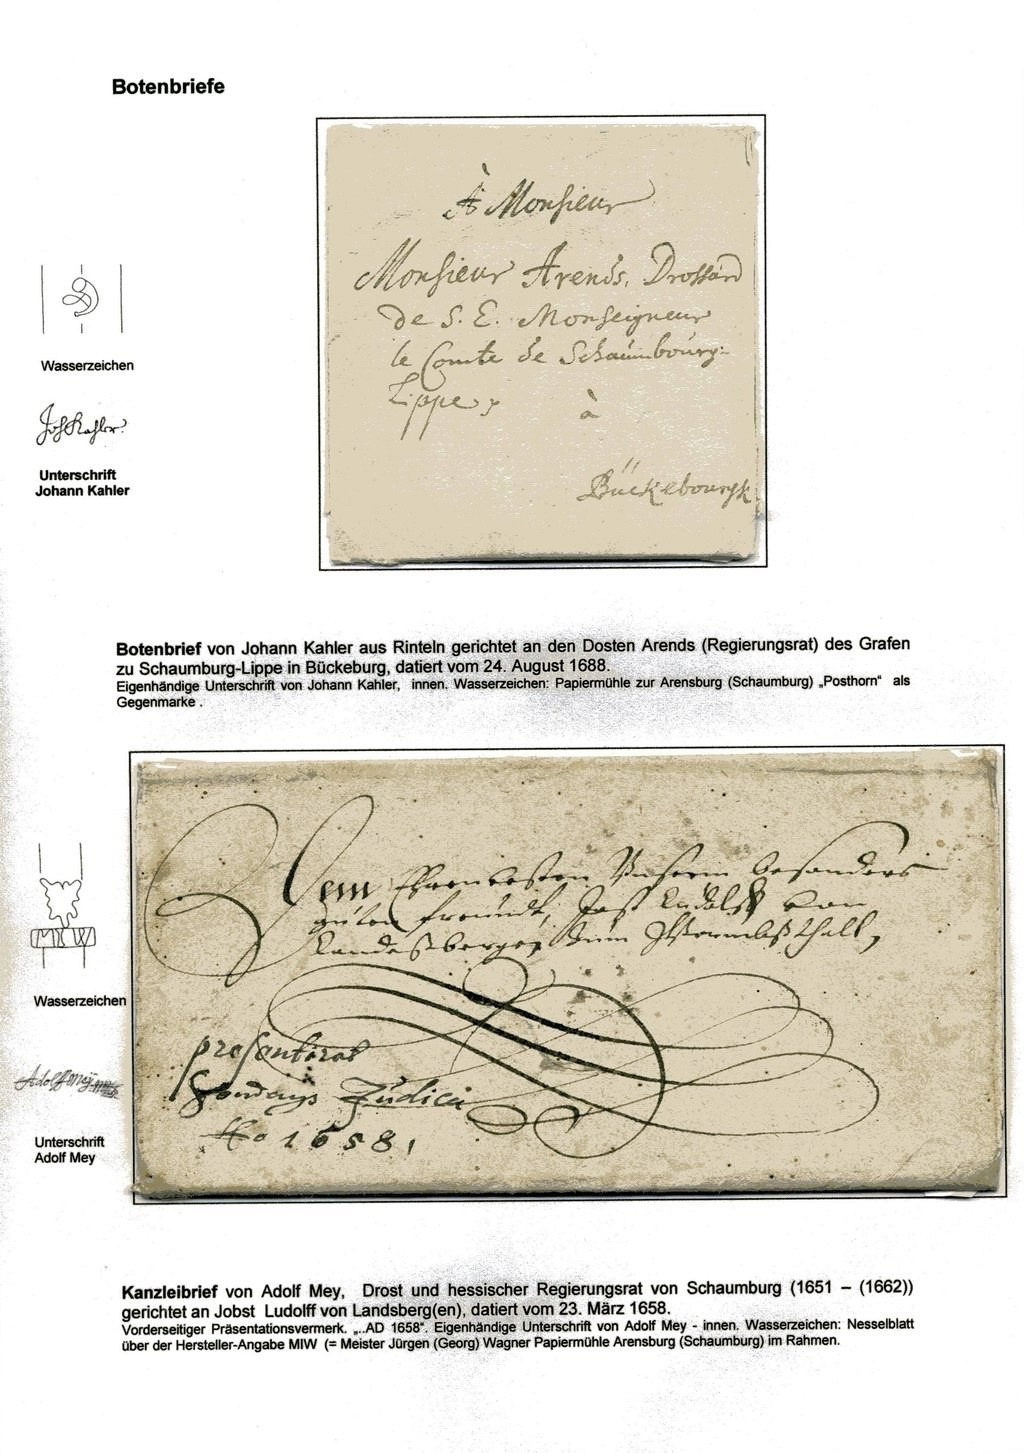 Botenbriefe
À Monsieur
Monsieur Arends, Drossard
de S. E. Monseigneur
le Comte de Schaumbourg-
Lippe, à
Bückebourgk
Wasserzeichen
Joh Kahler
Unterschrift
Johann Kahler
Botenbrief von Johann Kahler aus Rinteln gerichtet an den Dosten Arends (Regierungsrat) des Grafen
zu Schaumburg-Lippe in Bückeburg, datiert vom 24. August 1688.
Eigenhändige Unterschrift von Johann Kahler, innen. Wasserzeichen: Papiermühle zur Arensburg (Schaumburg) „Posthorn" als
Gegenmarke .
Dem Ehrenvesten Unserm besonders
guten freundt, Jost Ludolff von
Landeßbergen zum
præsentirat
Judica
Ao 1658,
MIW
Wasserzeichen
Adolff Meÿ
Unterschrift
Adolf Mey
Kanzleibrief von Adolf Mey, Drost und hessischer Regierungsrat von Schaumburg (1651 – (1662))
gerichtet an Jobst Ludolff von Landsberg(en), datiert vom 23. März 1658.
Vorderseitiger Präsentationsvermerk. „..AD 1658". Eigenhändige Unterschrift von Adolf Mey - innen. Wasserzeichen: Nesselblatt
über der Hersteller-Angabe MIW (= Meister Jürgen (Georg) Wagner Papiermühle Arensburg (Schaumburg) im Rahmen.